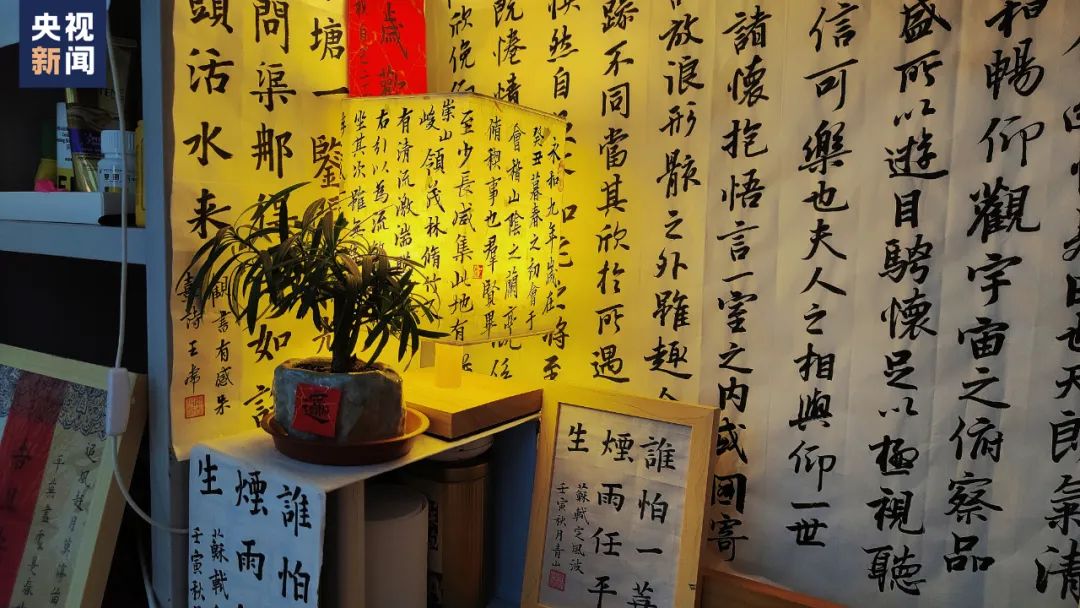 央视
新闻
日也天朗氣清
暢仰觀宇宙之俯察品
盛所以遊目騁懷足以極視聽
信可樂也夫人之相與仰一世
諸懷抱悟言一室之内或因寄
放浪形骸之外雖趣
跡不同當其欣於所遇
快然自
將至
既惓情
欣俛
永和九年歲在
癸丑暮春之初會于
會稽山陰之蘭亭
脩稧事也羣賢畢
至少長咸集此地有
崇山
峻領茂林脩竹
有清流激湍
右引以為流
坐其次雖無
塘一鑒
問渠那得如
頭活水来
觀書有感朱
熹诗王
福
誰怕一蓑
煙雨任平
生
蘇軾定風波
壬寅秋月青山
誰怕
煙雨
生
蘇軾
壬寅秋